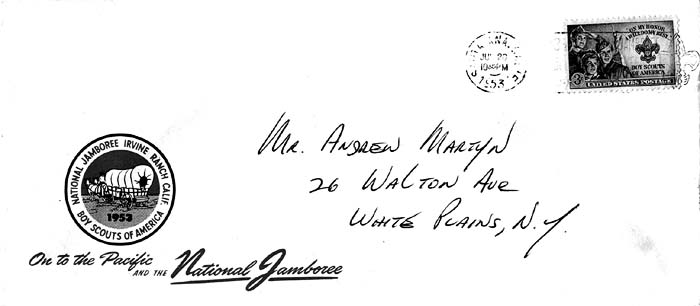 SANTA ANA, CALIF.
1953
ON MY HONOR
I WILL DO MY BEST
BOY SCOUTS
OF AMERICA
3¢ UNITED STATES POSTAGE
MR. ANDREW MARTYN
26 WALTON AVE
WHITE PLAINS, N.Y.
NATIONAL JAMBOREE IRVINE RANCH CALIF.
1953
BOY SCOUTS OF AMERICA
On to the Pacific
AND THE National Jamboree